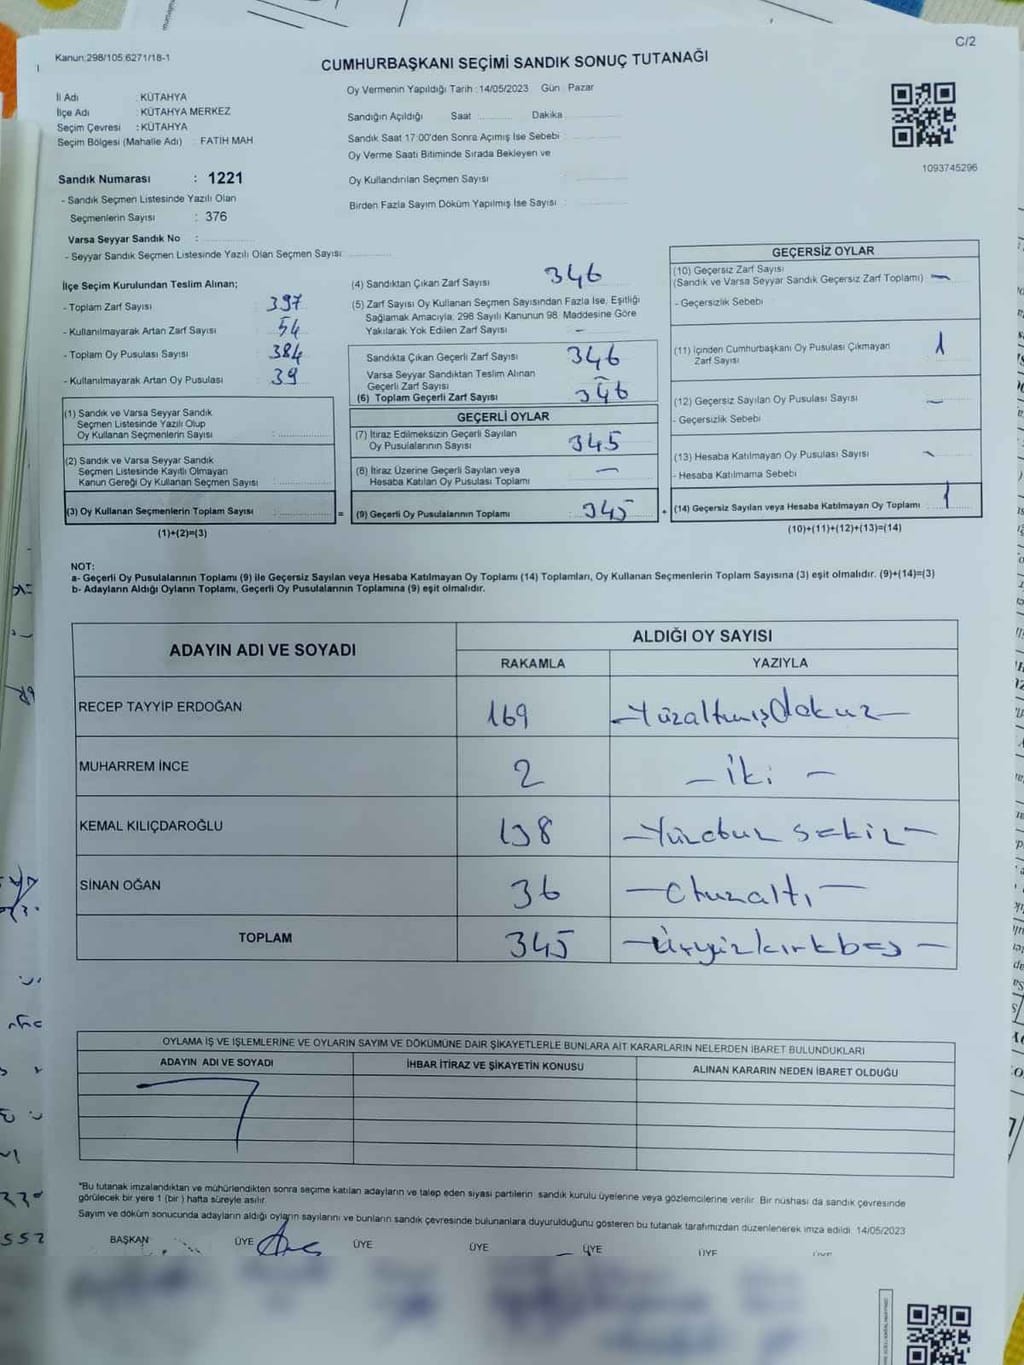 C/2
Kanun:298/105 6271/18-1
CUMHURBAŞKANI SEÇİMİ SANDIK SONUÇ TUTANAĞI
İl Adı : KÜTAHYA
İlçe Adı : KÜTAHYA MERKEZ
Seçim Çevresi : KÜTAHYA
Seçim Bölgesi (Mahalle Adı) : FATİH MAH
Oy Vermenin Yapıldığı Tarih :14/05/2023 Gün : Pazar
Sandığın Açıldığı Saat Dakika
Sandık Saat 17:00'den Sonra Açımış İse Sebebi
Oy Verme Saati Bitiminde Sırada Bekleyen ve
Oy Kullandırılan Seçmen Sayısı
Birden Fazla Sayım Döküm Yapılmış İse Sayısı
1093745296
Sandık Numarası : 1221
- Sandık Seçmen Listesinde Yazılı Olan
Seçmenlerin Sayısı : 376
Varsa Seyyar Sandık No :
- Seyyar Sandık Seçmen Listesinde Yazılı Olan Seçmen Sayısı:
İlçe Seçim Kurulundan Teslim Alınan;
- Toplam Zarf Sayısı : 397
- Kullanılmayarak Artan Zarf Sayısı : 54
- Toplam Oy Pusulası Sayısı : 384
- Kullanılmayarak Artan Oy Pusulası : 39
(1) Sandık ve Varsa Seyyar Sandık
Seçmen Listesinde Yazılı Olup
Oy Kullanan Seçmenlerin Sayısı :
(2) Sandık ve Varsa Seyyar Sandık
Seçmen Listesinde Kayıtlı Olmayan
Kanun Gereği Oy Kullanan Seçmen Sayısı :
(3) Oy Kullanan Seçmenlerin Toplam Sayısı :
(1)+(2)=(3)
(4) Sandıktan Çıkan Zarf Sayısı 346
(5) Zarf Sayısı Oy Kullanan Seçmen Sayısından Fazla İse, Eşitliği
Sağlamak Amacıyla, 298 Sayılı Kanunun 98. Maddesine Göre
Yakılarak Yok Edilen Zarf Sayısı –
Sandıkta Çıkan Geçerli Zarf Sayısı 346
Varsa Seyyar Sandıktan Teslim Alınan
Geçerli Zarf Sayısı –
(6) Toplam Geçerli Zarf Sayısı 346
GEÇERLİ OYLAR
(7) İtiraz Edilmeksizin Geçerli Sayılan
Oy Pusulalarının Sayısı 345
(8) İtiraz Üzerine Geçerli Sayılan veya
Hesaba Katılan Oy Pusulası Toplamı –
= (9) Geçerli Oy Pusulalarının Toplamı 345
GEÇERSİZ OYLAR
(10) Geçersiz Zarf Sayısı
(Sandık ve Varsa Seyyar Sandık Geçersiz Zarf Toplamı) –
- Geçersizlik Sebebi
(11) İçinden Cumhurbaşkanı Oy Pusulası Çıkmayan
Zarf Sayısı 1
(12) Geçersiz Sayılan Oy Pusulası Sayısı –
- Geçersizlik Sebebi
(13) Hesaba Katılmayan Oy Pusulası Sayısı –
- Hesaba Katılmama Sebebi
+ (14) Geçersiz Sayılan veya Hesaba Katılmayan Oy Toplamı 1
(10)+(11)+(12)+(13)=(14)
NOT:
a- Geçerli Oy Pusulalarının Toplamı (9) ile Geçersiz Sayılan veya Hesaba Katılmayan Oy Toplamı (14) Toplamları, Oy Kullanan Seçmenlerin Toplam Sayısına (3) eşit olmalıdır. (9)+(14)=(3)
b- Adayların Aldığı Oyların Toplamı, Geçerli Oy Pusulalarının Toplamına (9) eşit olmalıdır.
ADAYIN ADI VE SOYADI
ALDIĞI OY SAYISI
RAKAMLA YAZIYLA
RECEP TAYYİP ERDOĞAN 169 –Yüzaltmışdokuz–
MUHARREM İNCE 2 – iki –
KEMAL KILIÇDAROĞLU 138 –Yüzotuz sekiz–
SİNAN OĞAN 36 –Otuzaltı–
TOPLAM 345 –Üçyüzkırkbeş–
OYLAMA İŞ VE İŞLEMLERİNE VE OYLARIN SAYIM VE DÖKÜMÜNE DAİR ŞİKAYETLERLE BUNLARA AİT KARARLARIN NELERDEN İBARET BULUNDUKLARI
ADAYIN ADI VE SOYADI İHBAR İTİRAZ VE ŞİKAYETİN KONUSU ALINAN KARARIN NEDEN İBARET OLDUĞU
*Bu tutanak imzalandıktan ve mühürlendikten sonra seçime katılan adayların ve talep eden siyasi partilerin sandık kurulu üyelerine veya gözlemcilerine verilir. Bir nüshası da sandık çevresinde
görülecek bir yere 1 (bir ) hafta süreyle asılır.
Sayım ve döküm sonucunda adayların aldığı oyların sayılarını ve bunların sandık çevresinde bulunanlara duyurulduğunu gösteren bu tutanak tarafımızdan düzenlenerek imza edildi. 14/05/2023
BAŞKAN ÜYE ÜYE ÜYE ÜYE ÜYE ÜYE